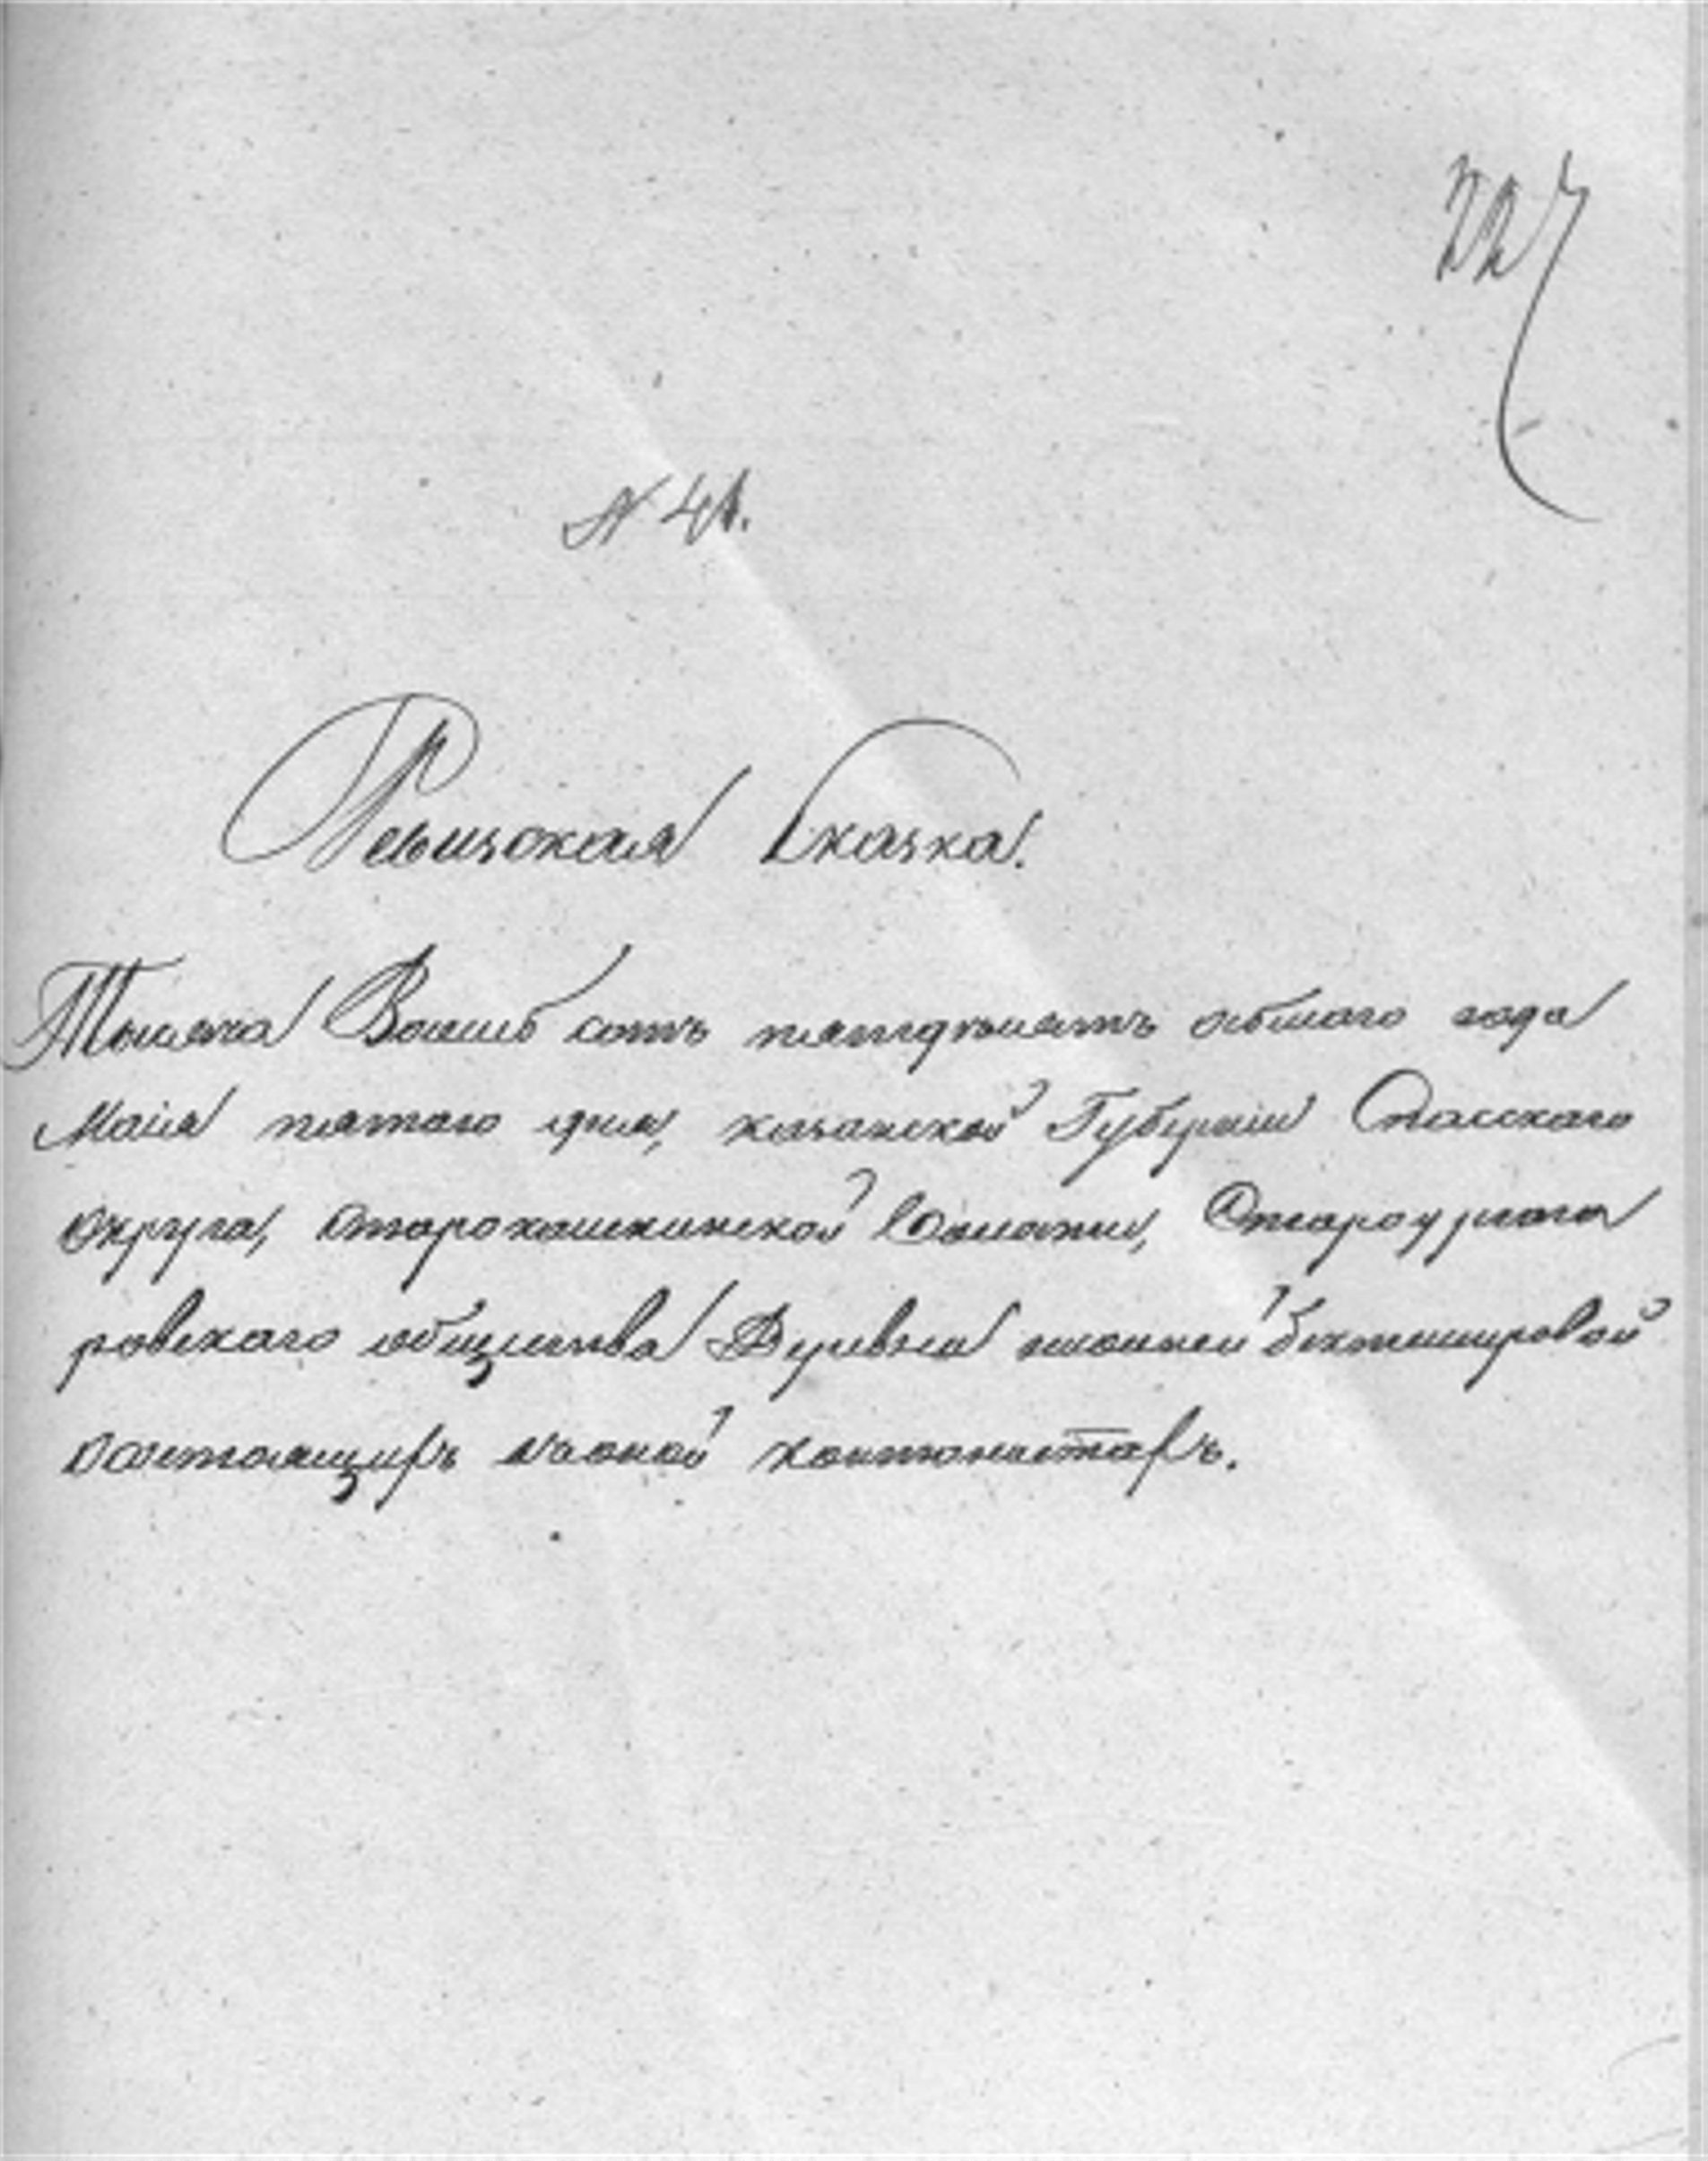 N 41.
Ревизская Сказка.
Тысяча Восемь сотъ пятьдесятъ осьмаго года
Маія пятаго дня, казанской Губерніи Спасскаго
округа, Старокашкинской Волости, Староурма
ровскаго общества Деревни Бектемировой
состоящихъ кантонистахъ.